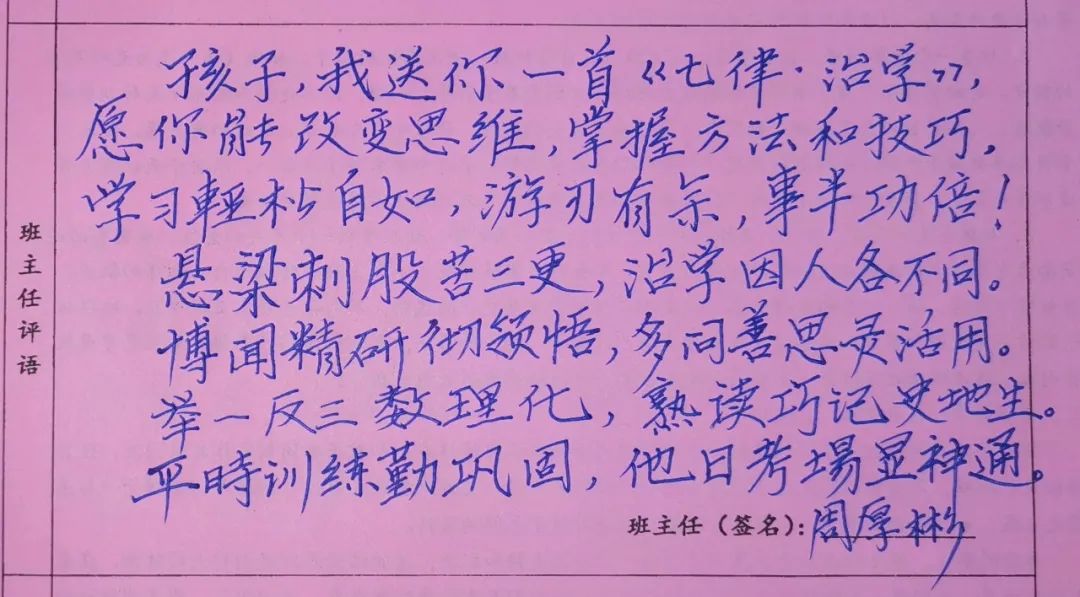 孩子,我送你一首《七律·治学》,
愿你能改变思维,掌握方法和技巧,
学习輕松自如,游刃有余,事半功倍!
悬梁刺股苦三更,治学因人各不同。
博闻精研彻领悟,多问善思灵活用。
举一反三数理化,熟读巧记史地生。
平時训练勤巩固,他日考場显神通。
班主任评语
班主任(签名):周厚彬